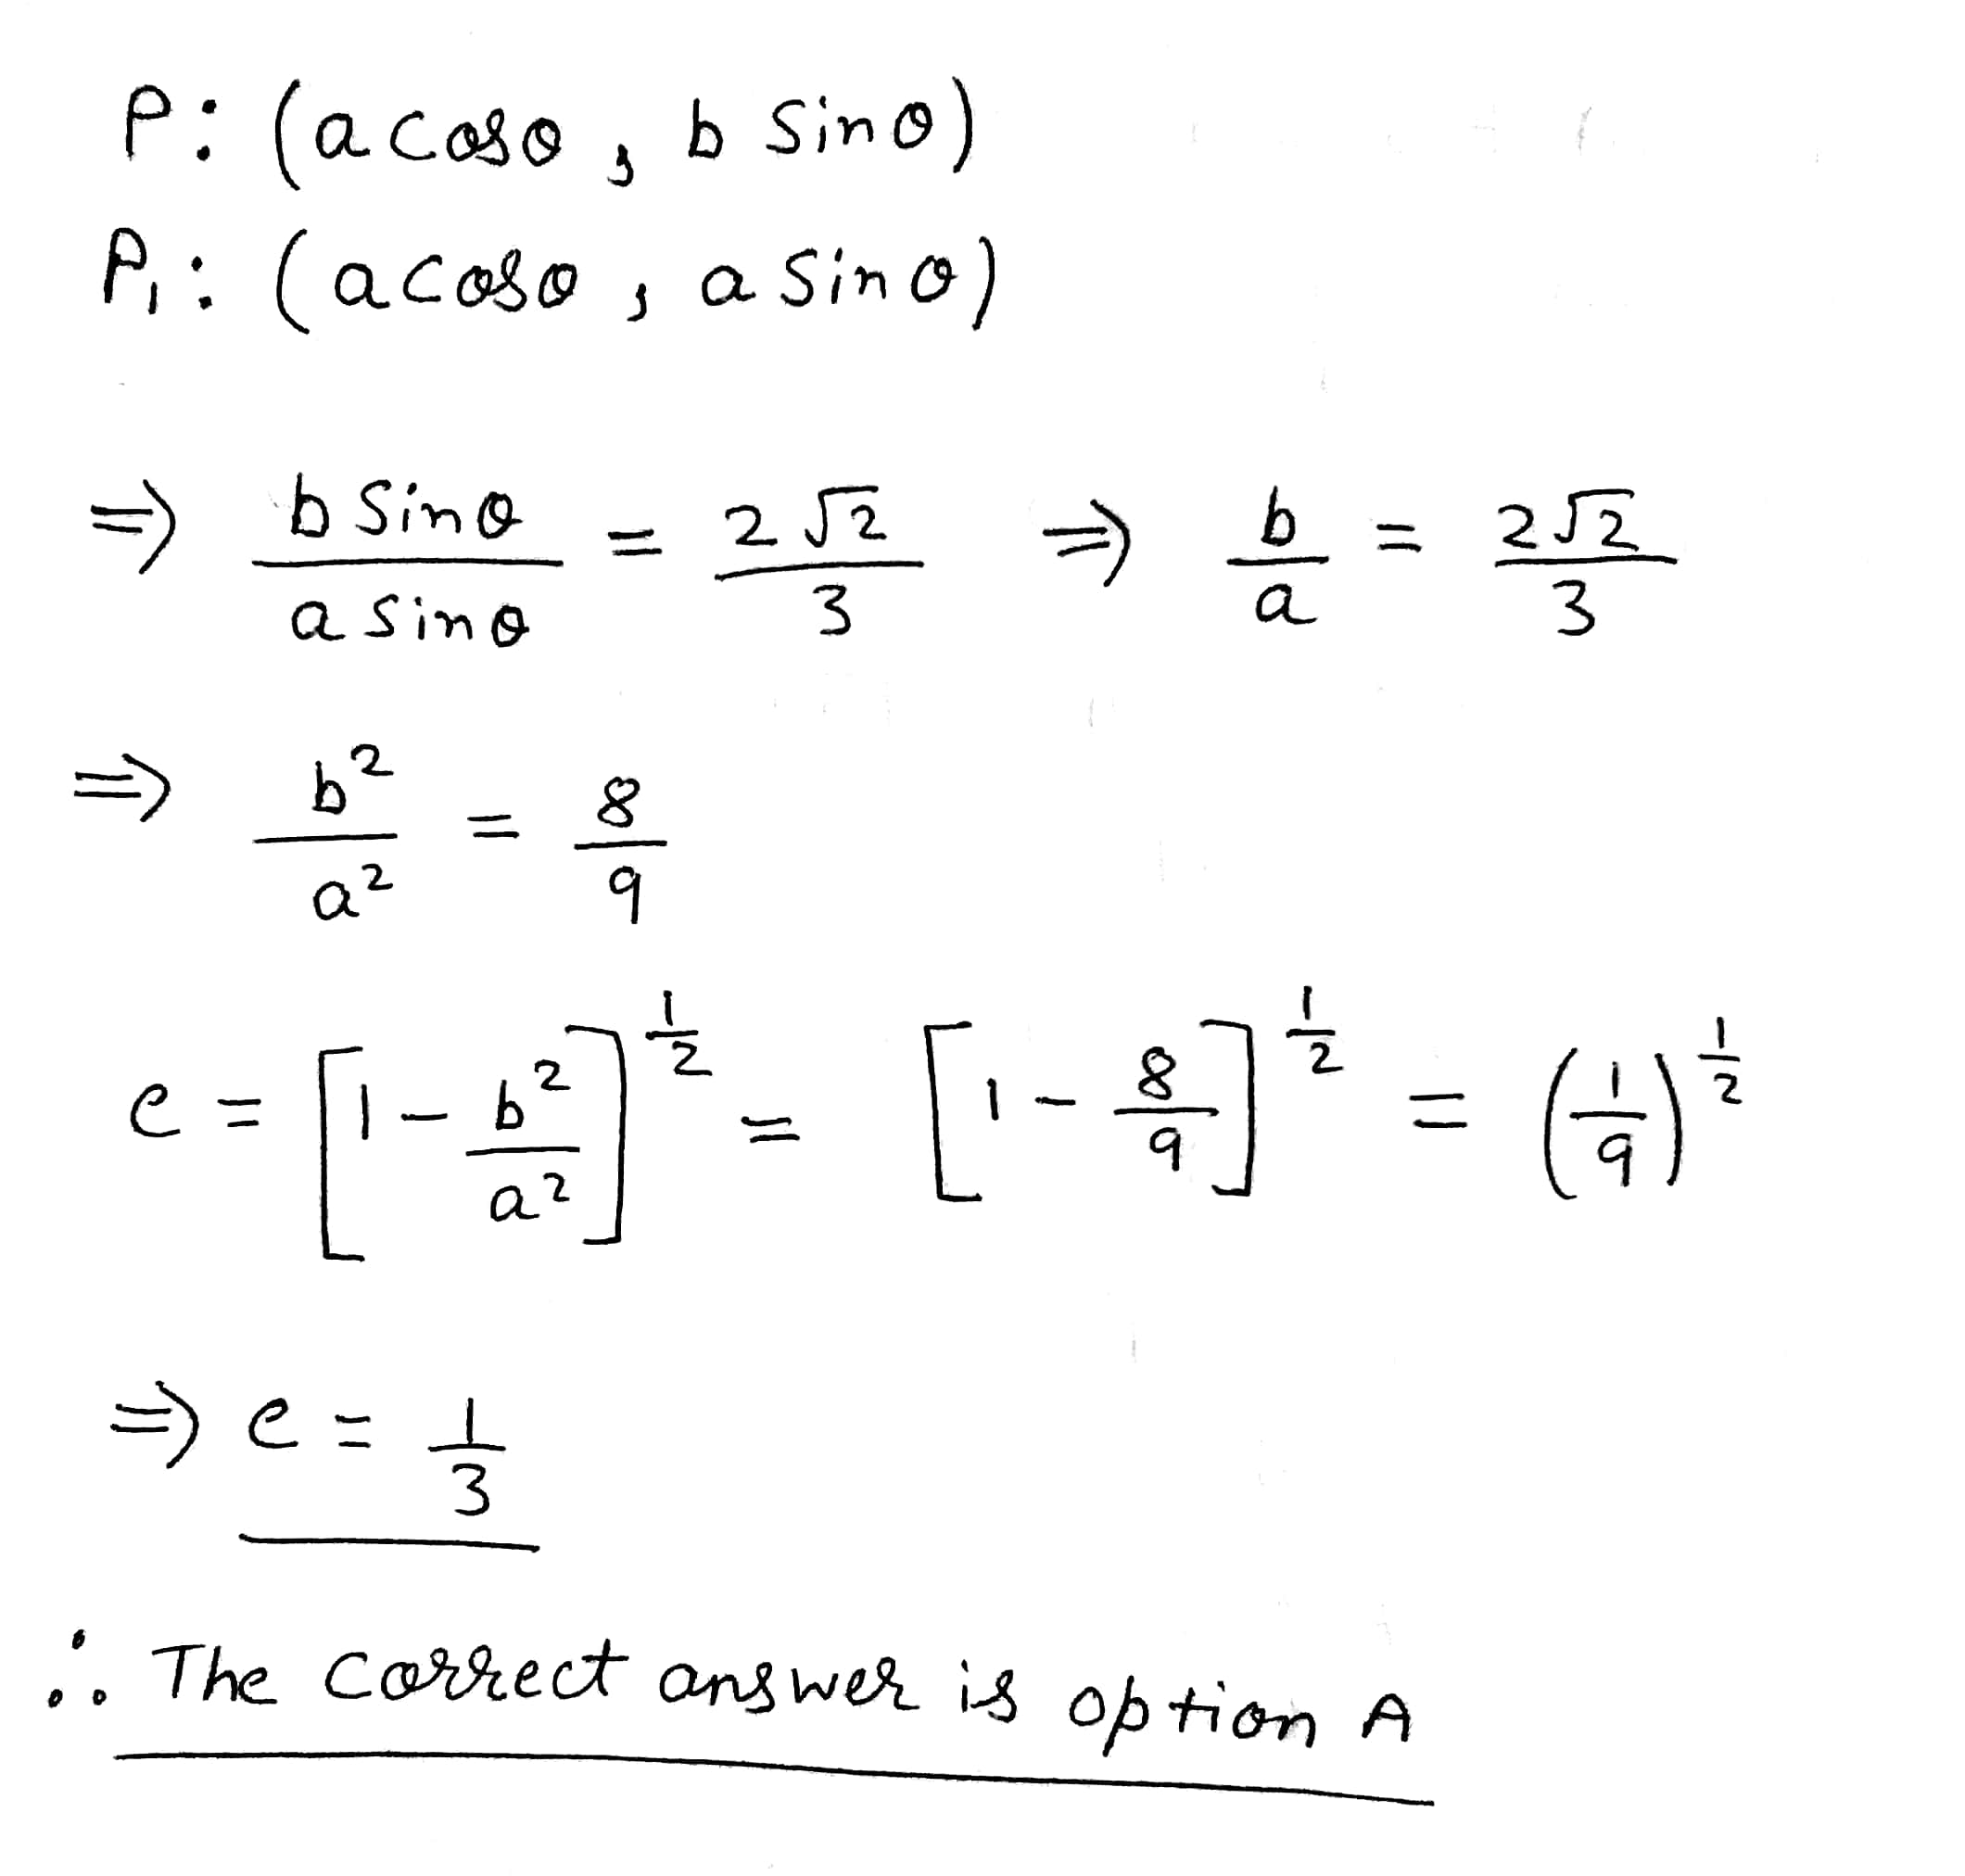 P: (a cosθ, b sinθ)
P₁: (a cosθ, a sinθ)
⇒ b sinθ / a sinθ = 2√2 / 3 ⇒ b / a = 2√2 / 3
⇒ b² / a² = 8 / 9
e = [1 - b² / a²]^(1/2) = [1 - 8 / 9]^(1/2) = (1 / 9)^(1/2)
⇒ e = 1 / 3
∴ The correct answer is option A